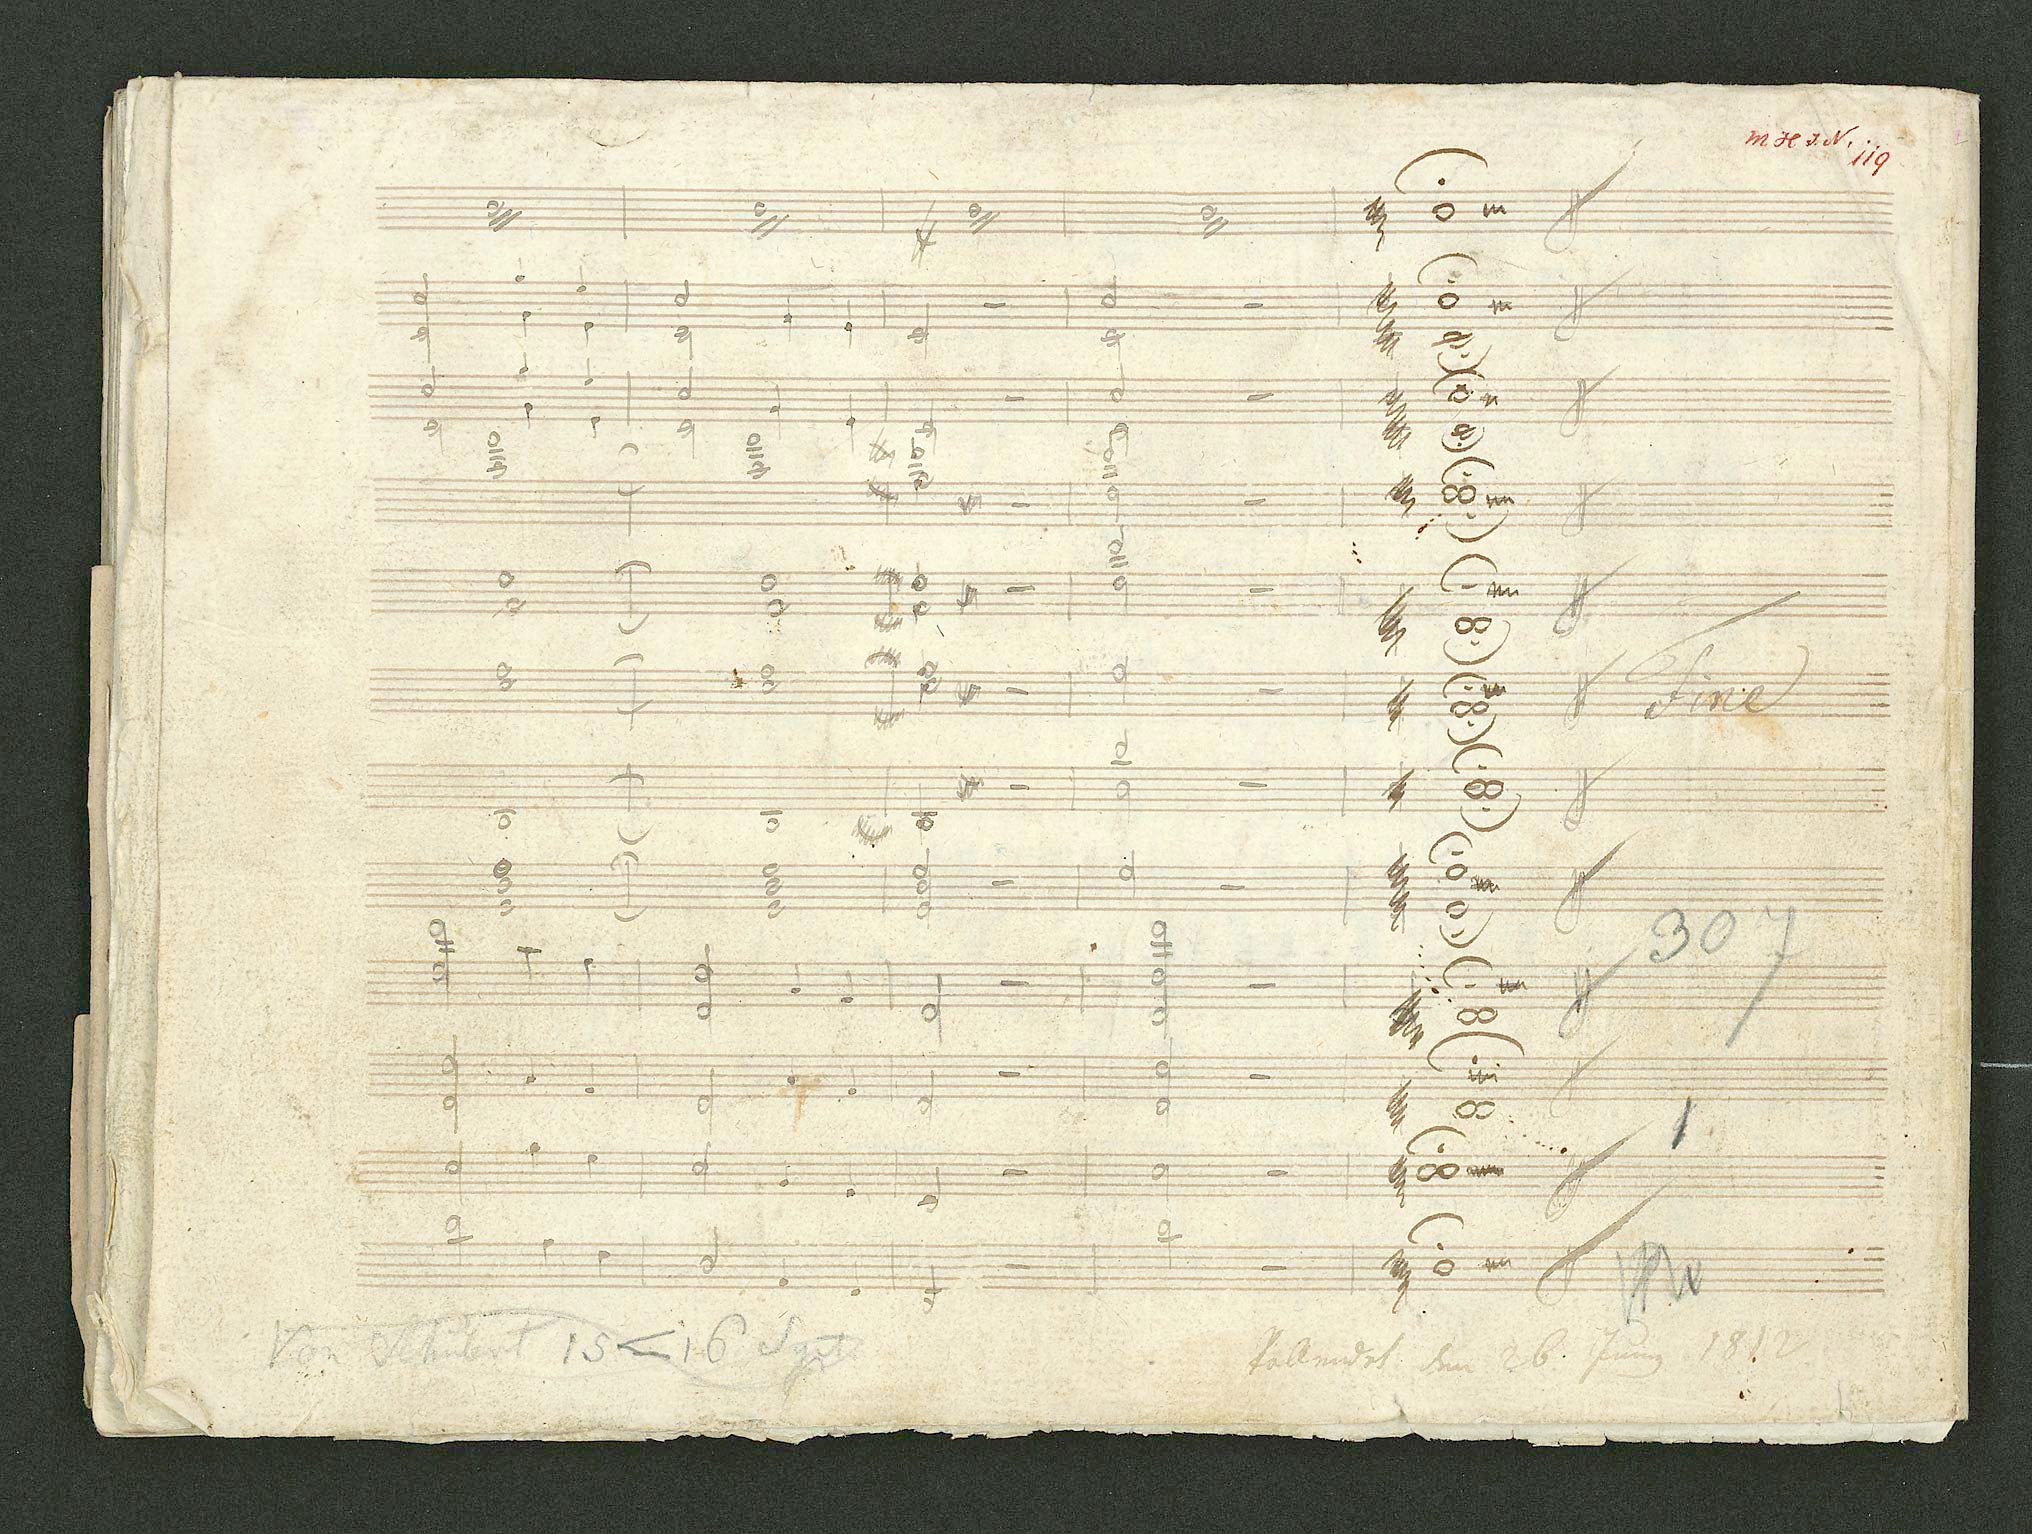 M H I.N. 119
Fine
307
1
Von Schubert 15 < 16
Vollendet den 26 Juny 1812